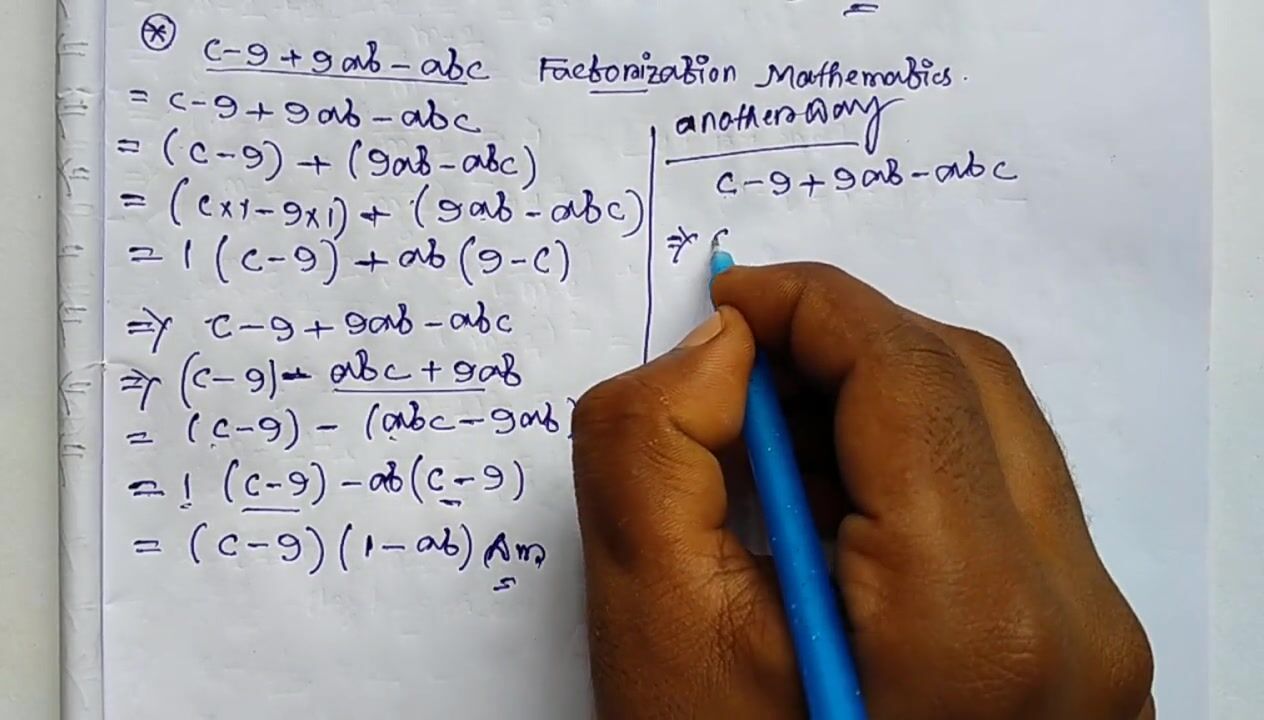 c-9+9ab-abc Factorization Mathematics.
= c-9+9ab-abc
= (c-9) + (9ab-abc)
= (c×1-9×1) + (9ab-abc)
= 1 (c-9) + ab (9-c)
⇒ c-9+9ab-abc
⇒ (c-9) - abc + 9ab
= (c-9) - (abc-9ab)
= 1 (c-9) - ab (c-9)
= (c-9) (1-ab) Ans
another way
c-9+9ab-abc
⇒ c